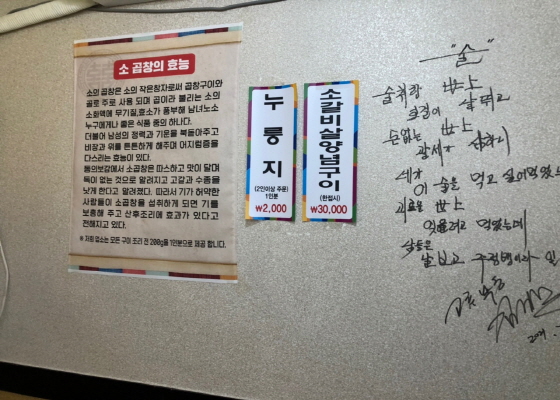 소 곱창의 효능
소의 곱창은 소의 작은창자로써 곱창구이와
골로 주로 사용 되며 곱이라 불리는 소의
소화액에 무기질,효소가 풍부해 남녀노소
누구에게나 좋은 식품 중의 하나다.
더불어 남성의 정력과 기운을 북돋아주고
비장과 위를 튼튼하게 해주며 어지럼증을
다스리는 효능이 있다.
동의보감에서 소곱창은 따스하고 맛이 달며
독이 없는 것으로 알려지고 고갈과 수종을
낫게 한다고 알려졌다. 따라서 기가 허약한
사람들이 소곱창을 섭취하게 되면 기를
보충해 주고 산후조리에 효과가 있다고
전해지고 있다.
※ 저희 업소는 모든 구이 조리 전 200g을 1인분으로 제공 합니다.
누룽지
(2인이상 주문)
1인분
₩2,000
소갈비살양념구이
(한접시)
₩30,000
"술"
술취한 世上
손없는 世上
이 술을 먹고 싶어 먹었노
괴로운 世上
잊을려고 먹었는데
날보고 주정뱅이라